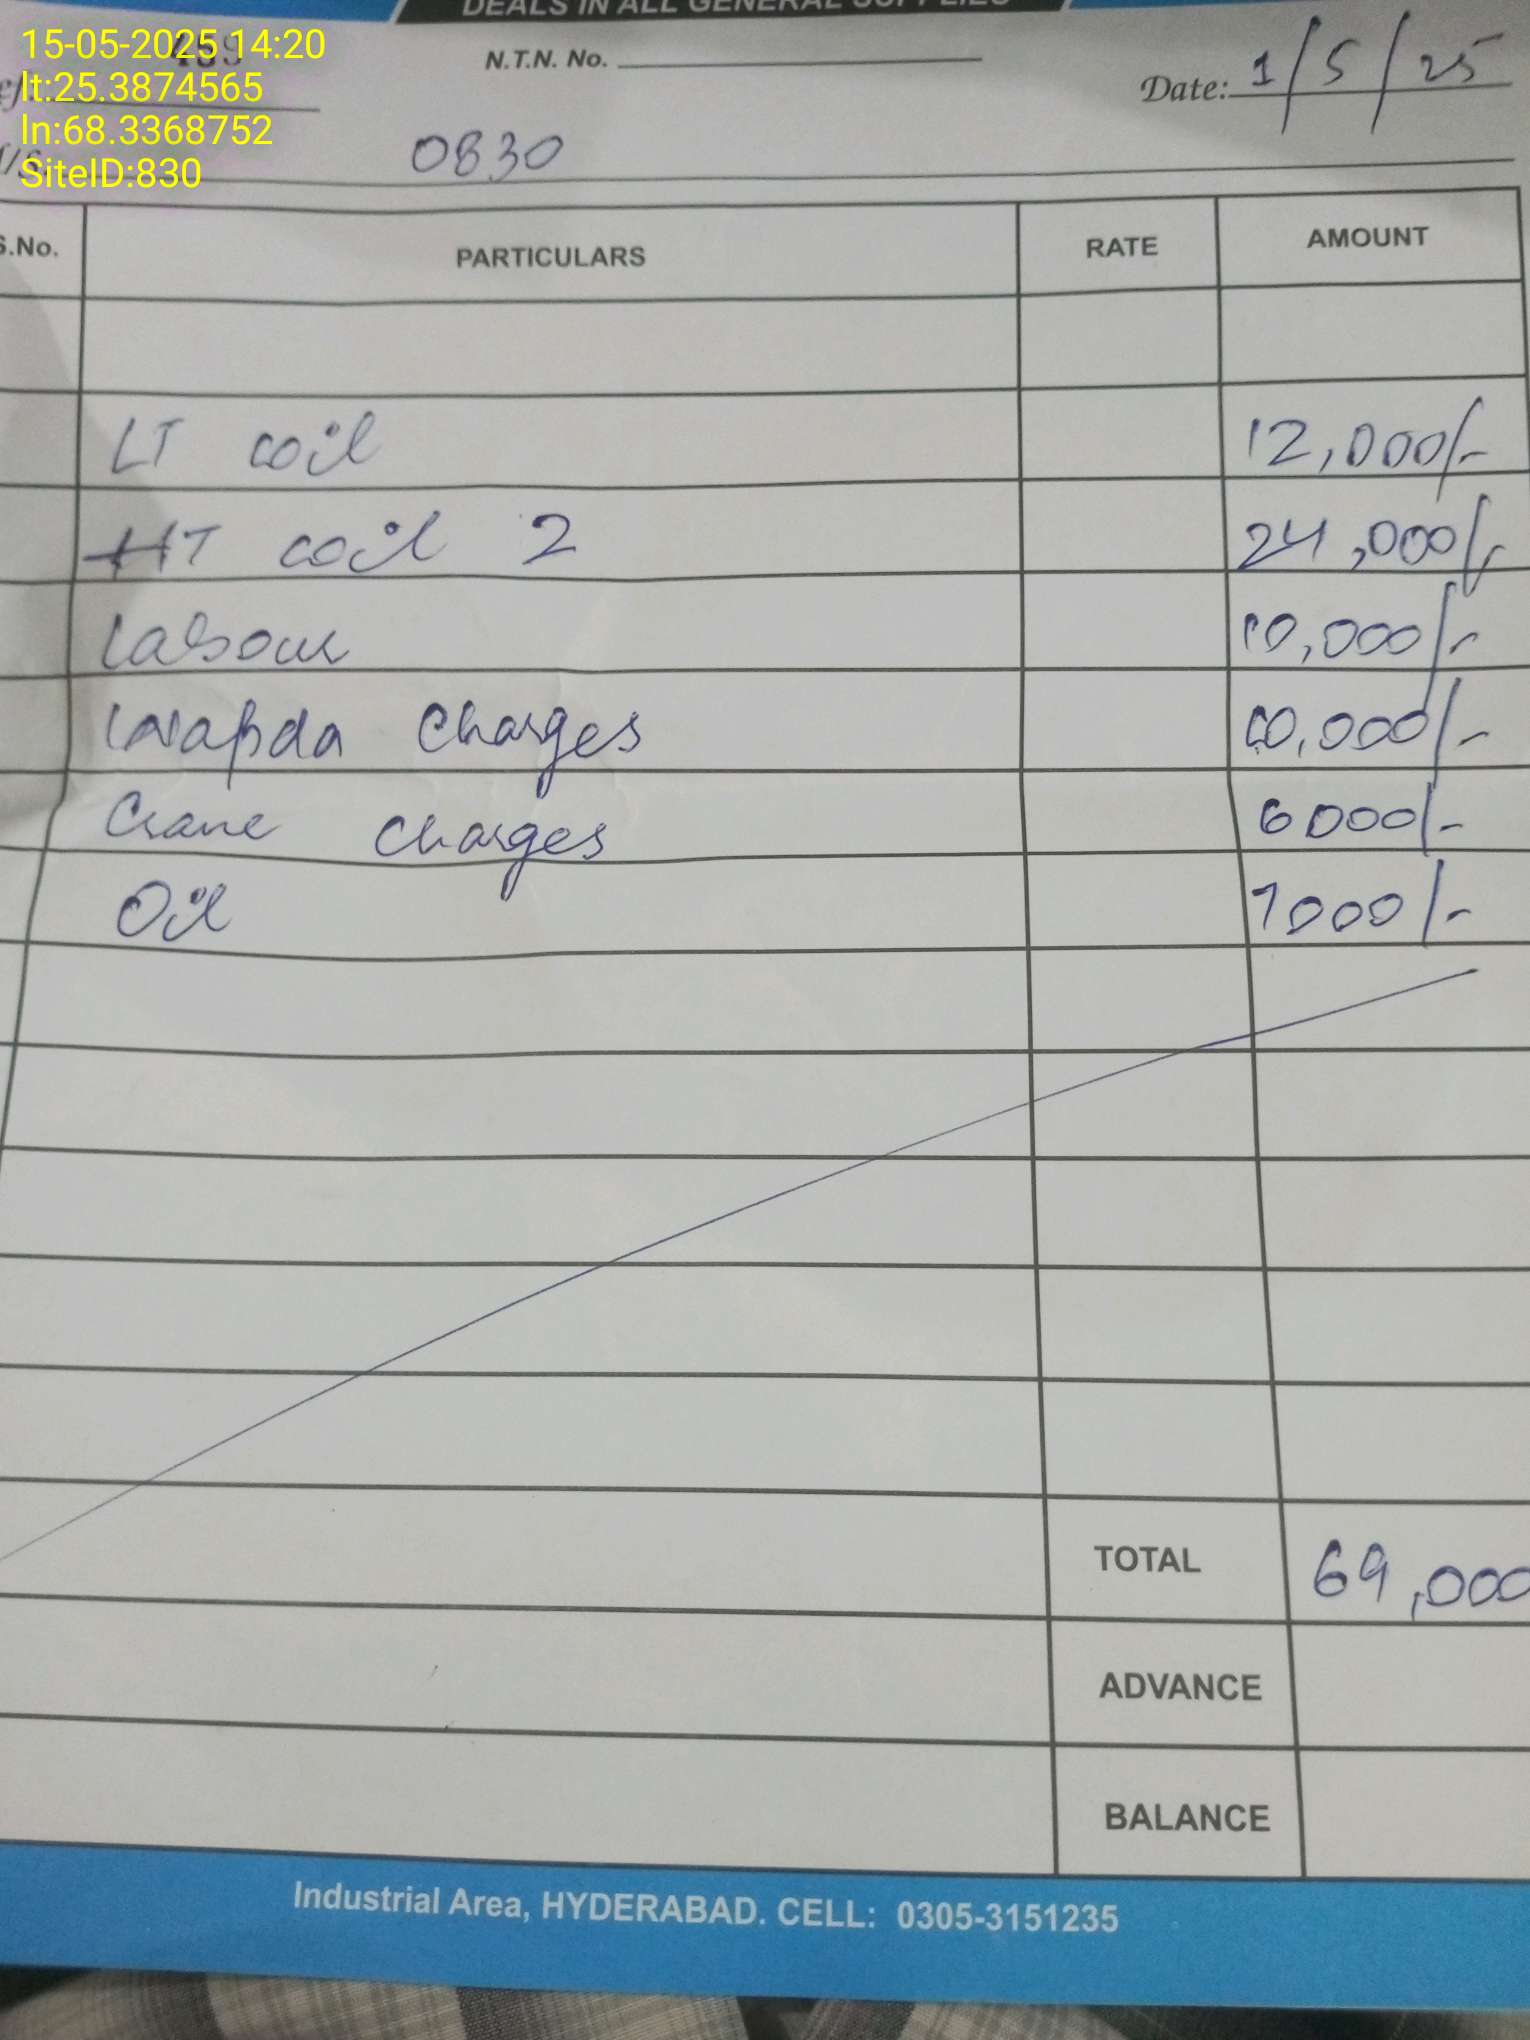 DEALS IN ALL GENERAL SUPPLIES
15-05-2025 14:20
lt:25.3874565
ln:68.3368752
SiteID:830
459
N.T.N. No.
Date: 1/5/25
0830
S.No. PARTICULARS RATE AMOUNT
LT coil 12,000/-
HT coil 2 24,000/-
Labour 10,000/-
Wapda Charges 10,000/-
Crane Charges 6000/-
Oil 7000/-
TOTAL 69,000
ADVANCE
BALANCE
Industrial Area, HYDERABAD. CELL: 0305-3151235